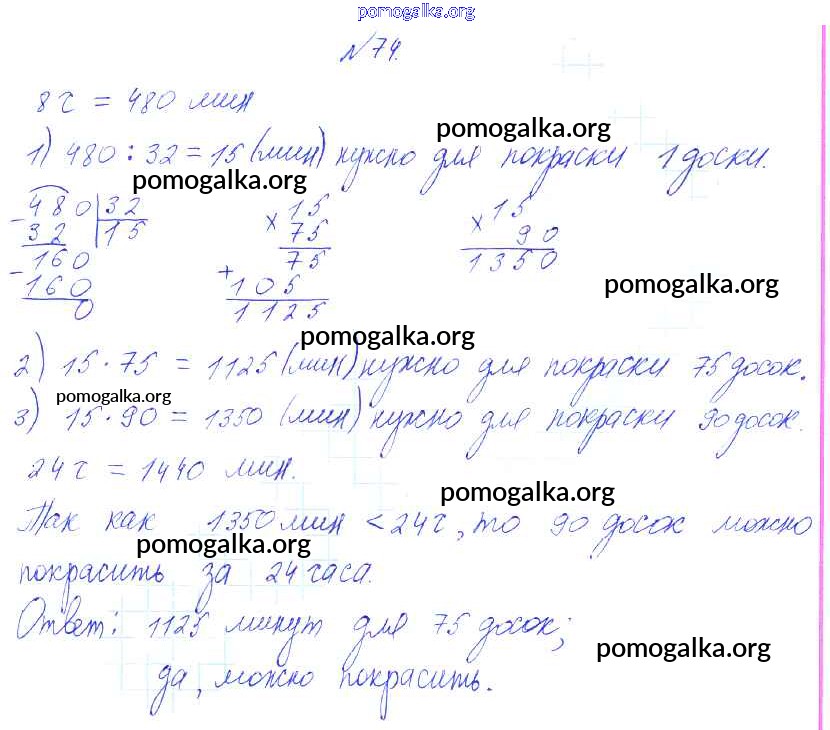 pomogalka.org
№74.
8ч = 480 мин
pomogalka.org
1) 480 : 32 = 15 (мин) нужно для покраски 1 доски.
pomogalka.org
- 480 | 32 × 15 × 15
32 | 15 75 90
- 160 75 1350
160 + 105 pomogalka.org
0 1125
pomogalka.org
2) 15 · 75 = 1125 (мин) нужно для покраски 75 досок.
pomogalka.org
3) 15 · 90 = 1350 (мин) нужно для покраски 90 досок.
24ч = 1440 мин.
pomogalka.org
Так как 1350 мин < 24ч, то 90 досок можно
pomogalka.org
покрасить за 24 часа.
Ответ: 1125 минут для 75 досок;
pomogalka.org
да, можно покрасить.